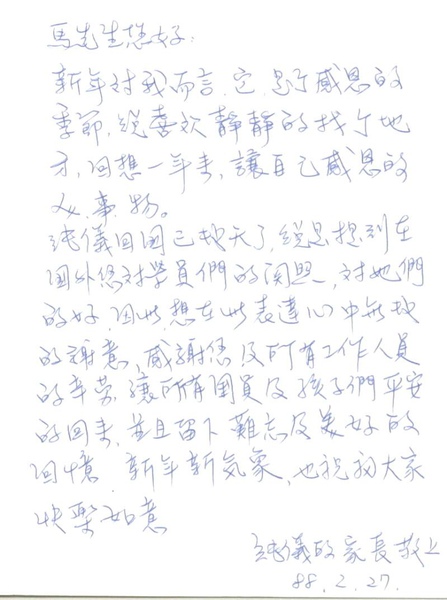 馬先生您好：
新年对我而言，它是个感恩的
季節，總喜欢靜靜的找个地
方，回想一年来，讓自己感恩的
人、事、物。
純儀回国已幾天了，總是想到在
国外您对學員們的関照，对她們
的好，因此，想在此表達心中無限
的謝意，感謝您及所有工作人員
的辛劳，讓所有團員及孩子們平安
的回来，並且留下難忘及美好的
回憶。新年新気象，也祝福大家
快樂如意
純儀的家長敬上
88.2.27.